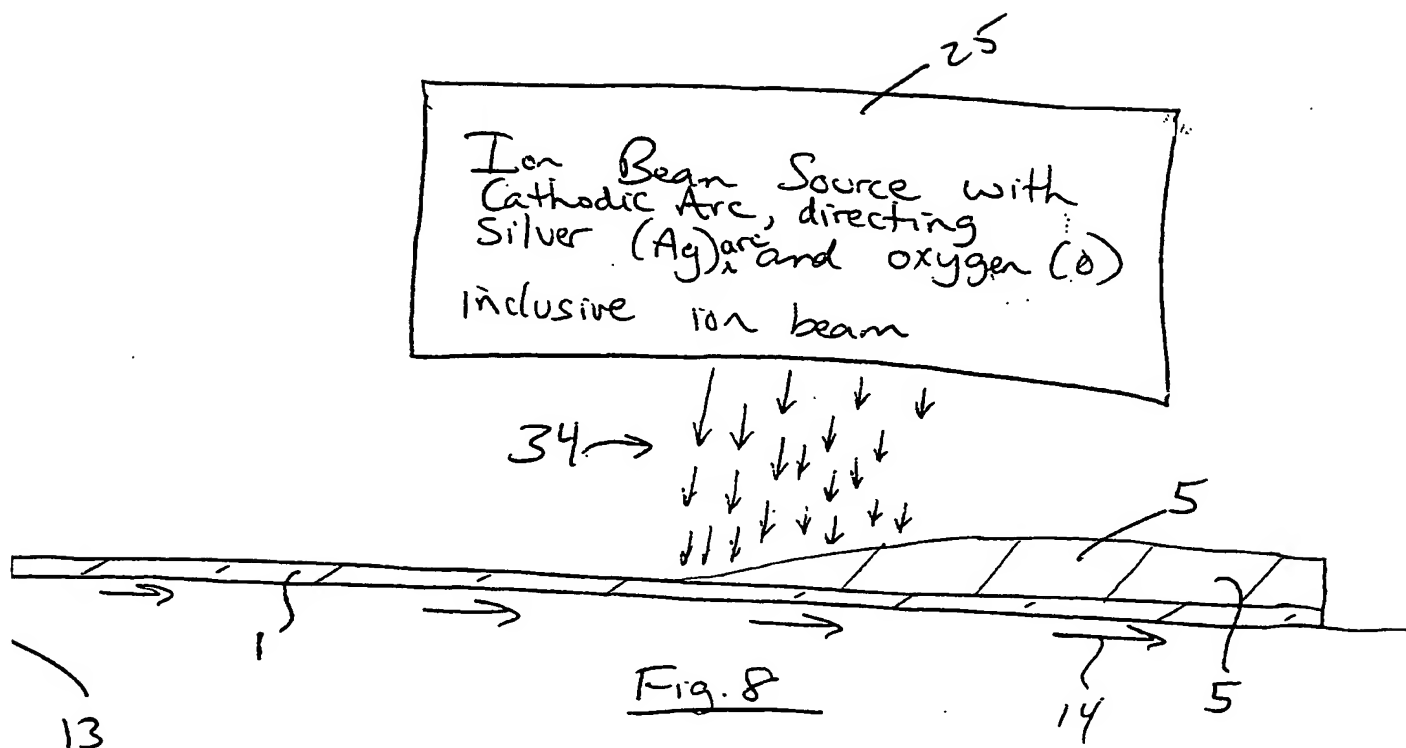 25
Ion Beam Source with
Cathodic Arc, directing
Silver (Ag) arc and oxygen (O)
inclusive ion beam
34
5
1
5
13
14
Fig. 8